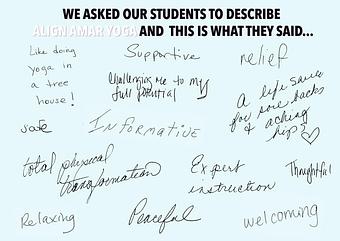 WE ASKED OUR STUDENTS TO DESCRIBE
ALIGN AMAR YOGA AND THIS IS WHAT THEY SAID...
Like doing
yoga in
a tree
house!
Supportive
relief
Challenging me to my
full potential
A life saver
for sore backs
& aching
hips
safe
INformative
total physical
transformation
Expert
instruction
Thoughtful
Relaxing
Peaceful
welcoming